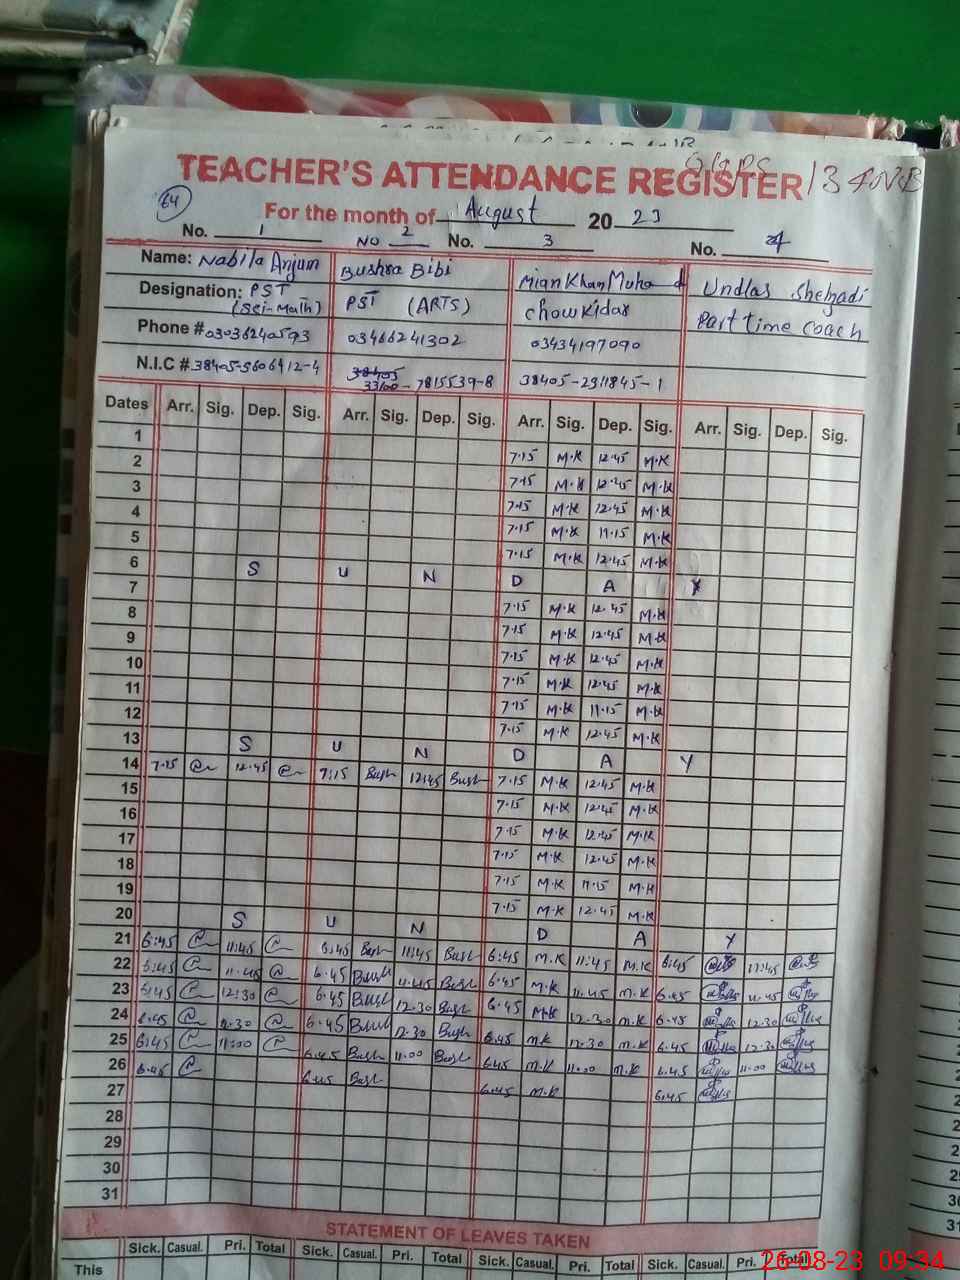 TEACHER'S ATTENDANCE REGISTER GGPS 134NB
64 For the month of August 20 23
No. 1 No 2 No. 3 No. 4
Name: Nabila Anjum Bushra Bibi Mian Khan Muhd Undlas Shehzadi
Designation: PST (Sci-Math) PST (ARTS) Chowkidar Part time coach
Phone # 03036240593 03466241302 03434197090
N.I.C # 38405-5606412-4 38405 33100-7815539-8 38405-2311845-1
Dates Arr. Sig. Dep. Sig. Arr. Sig. Dep. Sig. Arr. Sig. Dep. Sig. Arr. Sig. Dep. Sig.
1 7.15 M.K 12.45 M.K
2 7.15 M.K 12.45 M.K
3 7.15 M.K 12.45 M.K
4 7.15 M.K 11.15 M.K
5 7.15 M.K 12.45 M.K
6 S U N D A Y
7 7.15 M.K 12.45 M.K
8 7.15 M.K 12.45 M.K
9 7.15 M.K 12.45 M.K
10 7.15 M.K 12.45 M.K
11 7.15 M.K 11.15 M.K
12 7.15 M.K 12.45 M.K
13 S U N D A Y
14 7.15 12.45 7:15 Bush 12:45 Bush 7.15 M.K 12.45 M.K
15 7.15 M.K 12.45 M.K
16 7.15 M.K 12.45 M.K
17 7.15 M.K 12.45 M.K
18 7.15 M.K 11.15 M.K
19 7.15 M.K 12.45 M.K
20 S U N D A Y
21 6:45 11:45 6:45 Bush 11:45 Bush 6:45 M.K 11:45 M.K 6:45 11:45
22 6:45 11.45 6.45 Bush 11.45 Bush 6.45 M.K 11.45 M.K 6.45 11.45
23 6:45 12:30 6.45 Bush 12.30 Bush 6.45 M.K 12.30 M.K 6.45 12.30
24 6.45 12.30 6.45 Bush 12.30 Bush 6.45 M.K 12.30 M.K 6.45 12.30
25 6:45 11:00 6.45 Bush 11.00 Bush 6.45 M.K 11.00 M.K 6.45 11.00
26 6.45 6.45 Bush 6.45 M.K 6.45
27
28
29
30
31
STATEMENT OF LEAVES TAKEN
Sick. Casual. Pri. Total Sick. Casual. Pri. Total Sick. Casual. Pri. Total Sick. Casual. Pri. Total
This
26-08-23 09:34